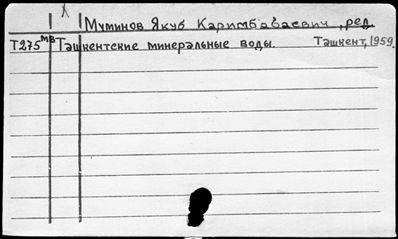 Муминов Якуб Каримбабаевич, ред.
Т275мв Ташкентские минеральные воды. Ташкент, 1959.